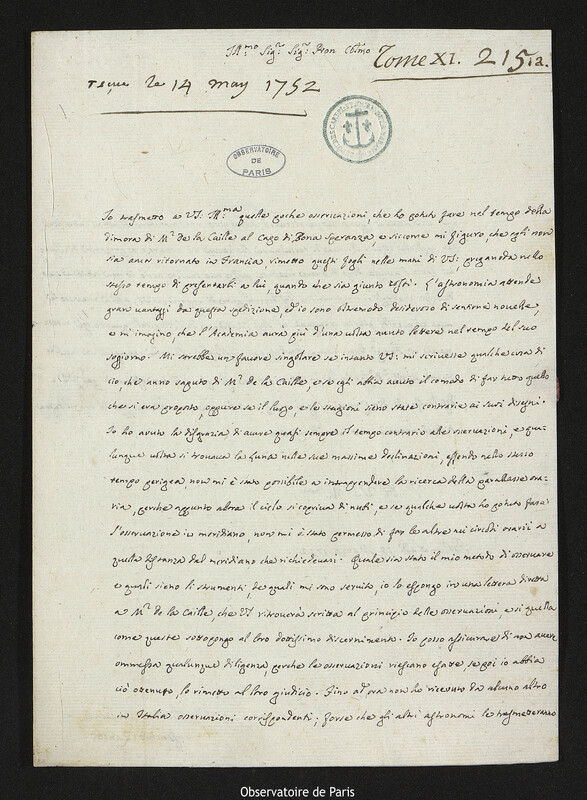 Ill.mo Sig.r Sig.r Pron Col.mo
Tome XI. 215 12.
reçue le 14 may 1752
OBSERVATOIRE
DE
PARIS
Io trasmetto a VS: Ill.ma quelle poche osservazioni, che ho potuto fare nel tempo della
dimora di M.r de la Caille al Capo di Bona Speranza, e siccome mi figuro, che egli non
sia ancor ritornato in Francia rimetto questi fogli nelle mani di VS:, pregandola nello
stesso tempo di presentarli a lui, quando che sia giunto costì. L'astronomia attende
gran vantaggi da questa spedizione, ed io sono oltremodo desideroso di sentirne novelle,
e mi imagino, che l'Academia aurà più d'una volta avuto lettere nel tempo del suo
soggiorno. Mi sarebbe un favore singolare se intanto VS: mi scrivesse qualche cosa di
ciò, che anno saputo di M.r de la Caille, e se egli abbia avuto il comodo di far tutto quello
che si era proposto, oppure se il luogo, e le stagioni sieno state contrarie ai suoi disegni.
Io ho avuto la disgrazia di avere quasi sempre il tempo contrario alle osservazioni, e qua-
lunque volta si trovava la Luna nelle sue massime declinazioni, essendo nello stesso
tempo perigea non mi è stato possibile a intraprendere la ricerca della parallasse ora-
ria, perche appunto allora il cielo si copriva di nubi, e se qualche volta ho potuto fare
l'osservazione in meridiano, non mi è stato permesso di far le altre nei circoli orarii a
quella distanza dal meridiano che richiedevasi. Quale sia stato il mio metodo di osservare
e quali sieno li strumenti, de quali mi sono servito, io lo espongo in una lettera diretta
a M.r de la Caille, che VS ritroverà scritta al principio delle osservazioni, e sì quella
come queste sottopongo al loro dottissimo discernimento. Io posso assicurare di non avere
ommessa qualunque diligenza, perche le osservazioni riescano esatte, se poi io abbia
ciò ottenuto, lo rimetto al loro giudicio. Fino ad ora non ho ricevuto da alcuno altro
in Italia osservazioni corrispondenti; forse che gli altri astronomi le trasmetteranno
Observatoire de Paris